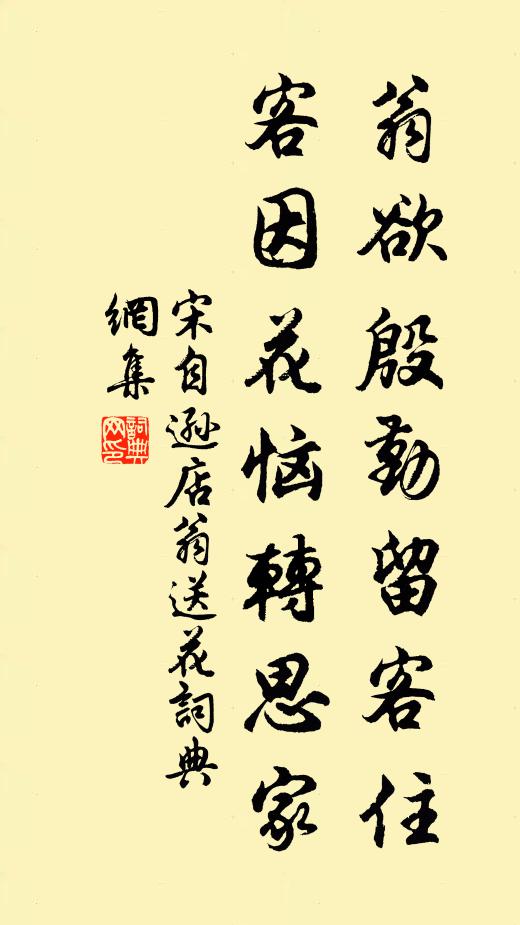 翁欲殷勤留客住
客因花恼轉思家
宋自遜店翁送花詞典
網集
詞典
网印